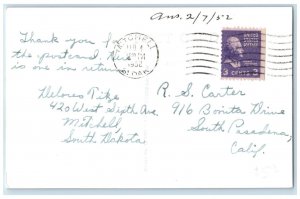 Ans. 2/7/52
Thank you for
the postcard. Here
is one in return.
Delores Pike
420 West Sixth Ave
Mitchell
South Dakota
MITCHELL
FEB 4
PM
1952
S. DAK.
UNITED
STATES
POSTAGE
3 CENTS 3
R. S. Carter
916 Bonita Drive
South Pasadena,
Calif.